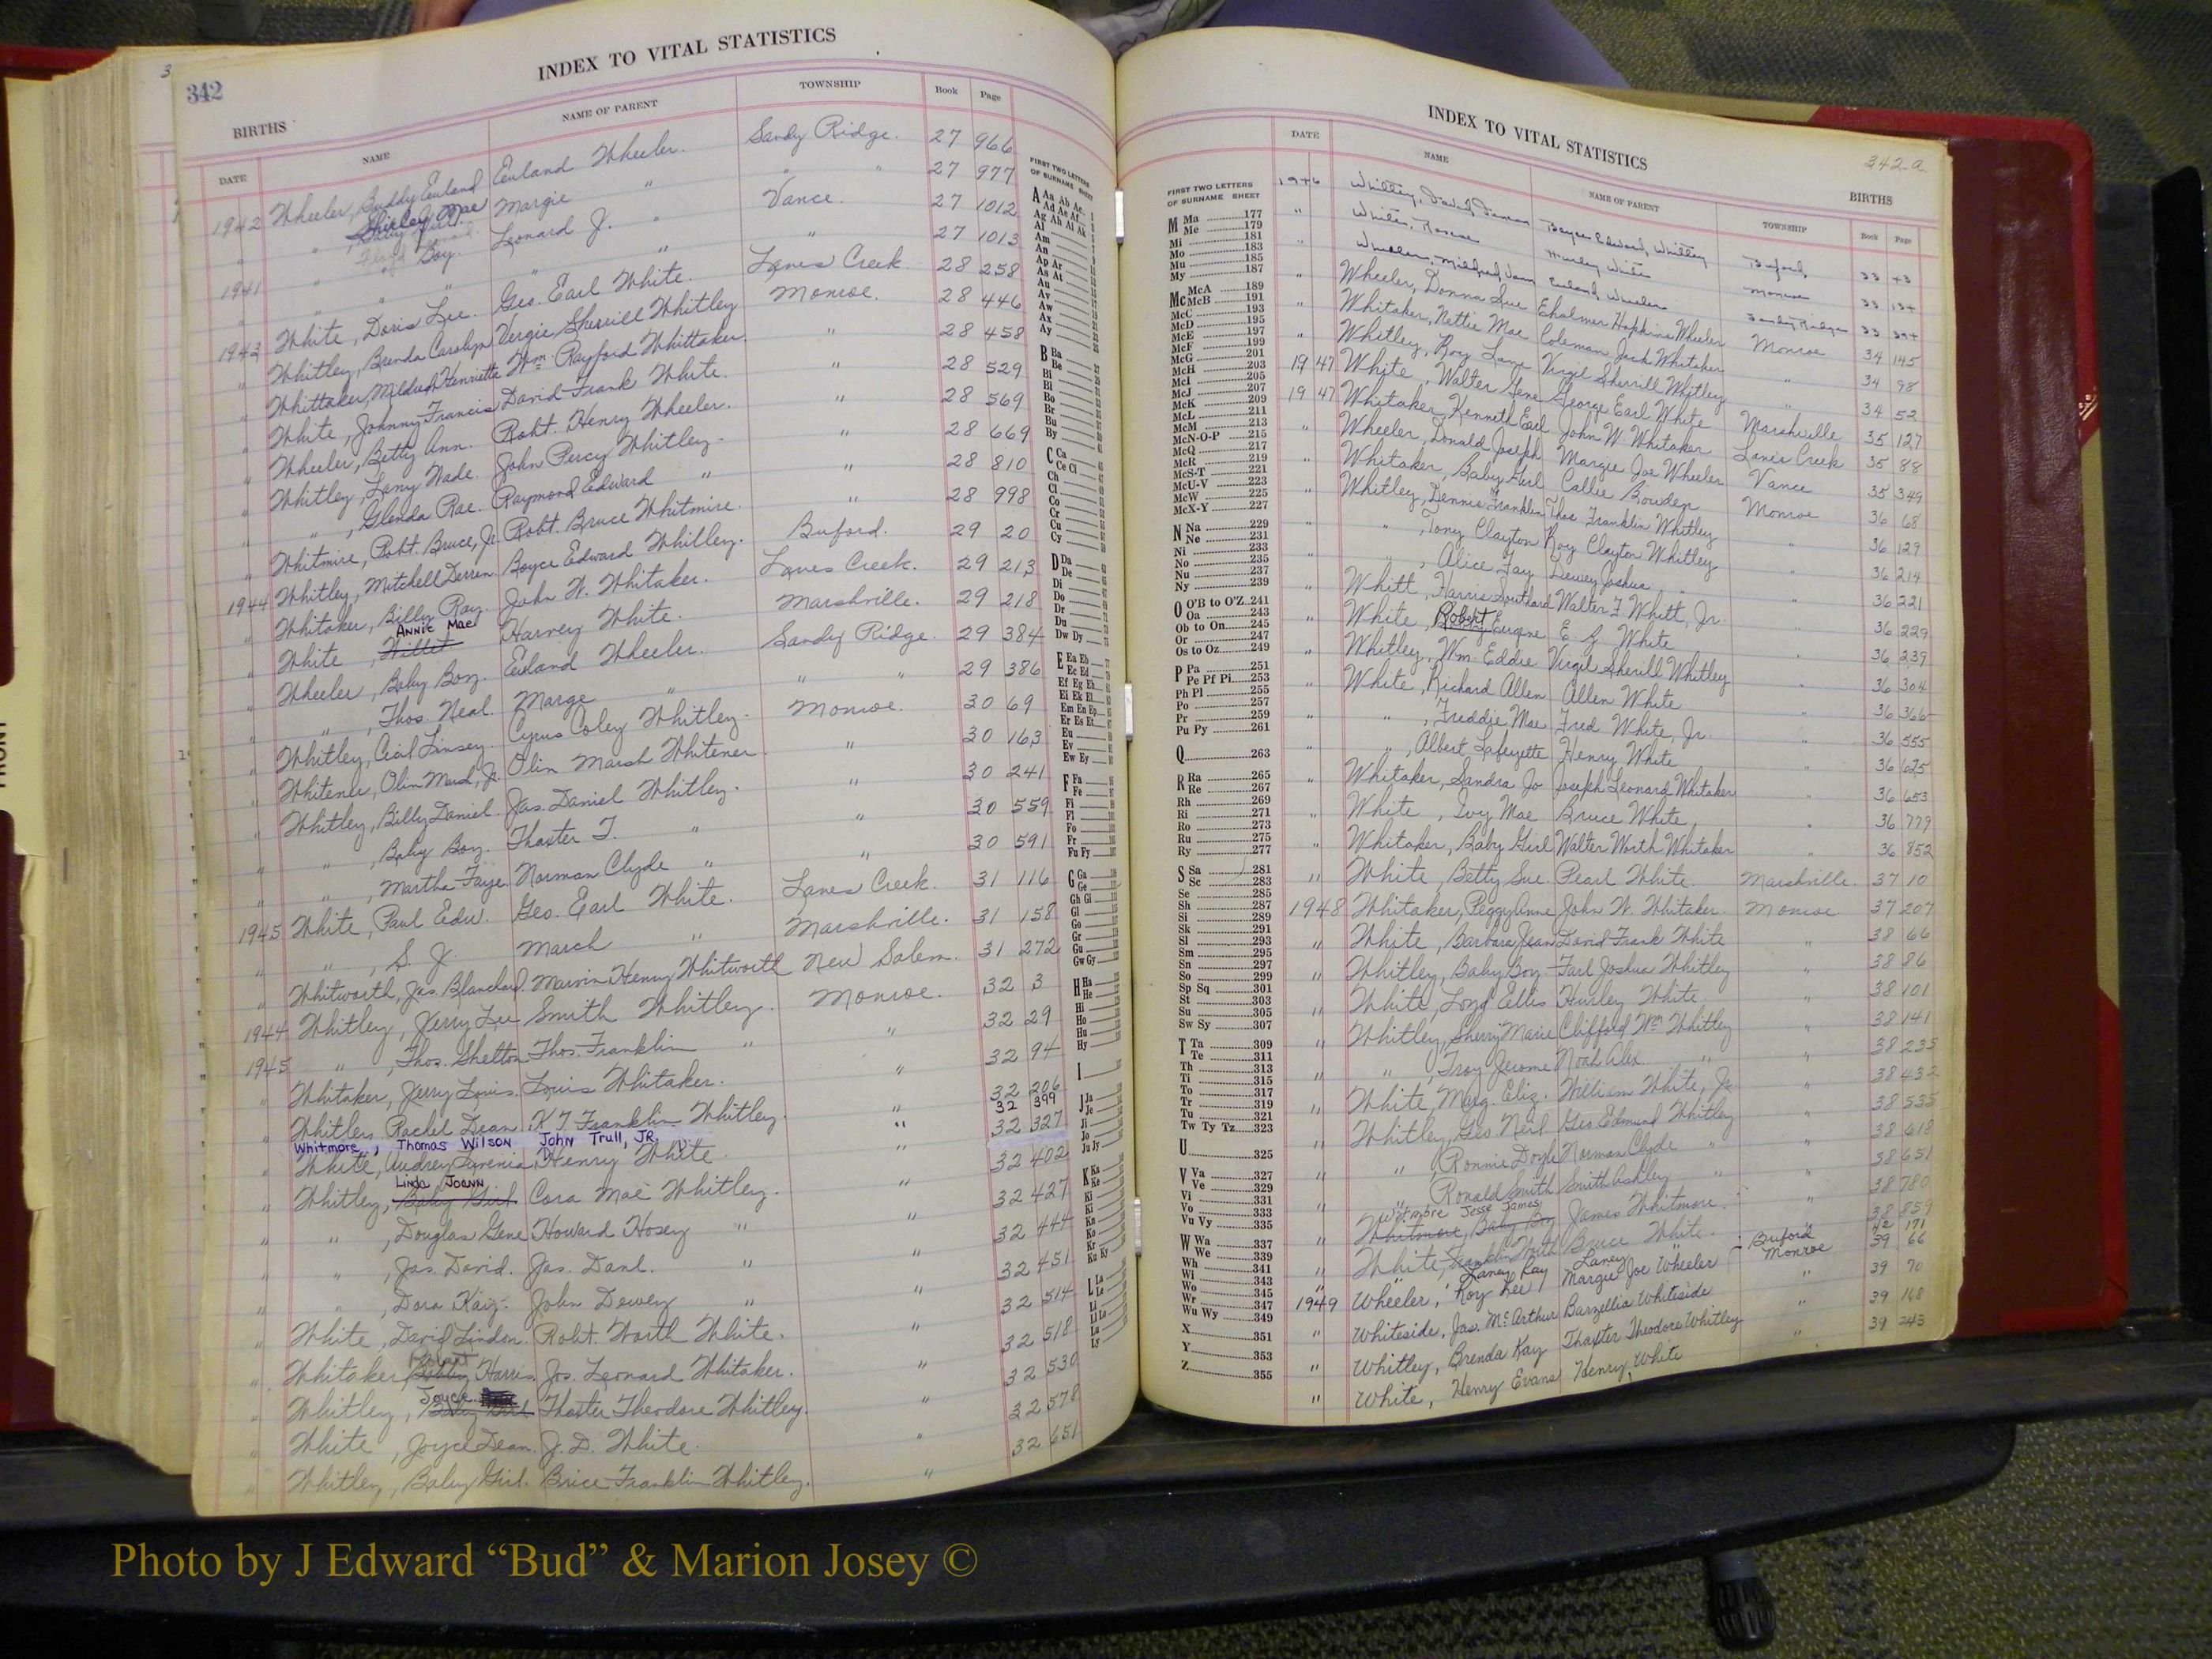 342
INDEX TO VITAL STATISTICS
BIRTHS
DATE NAME NAME OF PARENT TOWNSHIP Book Page
1942 Wheeler, Buddy Euland Euland Wheeler. Sandy Ridge. 27 966
" " , Shirley Mae Margie " " " 27 977
1941 " Boy. Leonard J. " Vance. 27 1012
" " " " " " 27 1013
1943 White, Doris Lee. Geo. Earl White. Lanes Creek. 28 258
" Whitley, Brenda Carolyn Vergie Sherrill Whitley Monroe. 28 446
" Whittaker, Mildred Henrietta Wm. Rayford Whittaker. " 28 458
" White, Johnny Francis David Frank White. " 28 529
" Wheeler, Betty Ann. Robt. Henry Wheeler. " 28 569
" Whitley, Lany Wade. John Percy Whitley. " 28 669
" " , Glenda Rae. Raymond Edward " " 28 810
" Whitmire, Robt. Bruce, Jr. Robt. Bruce Whitmire. " 28 998
1944 Whitley, Mitchell Derren. Boyce Edward Whitley. Buford. 29 20
" Whitaker, Billy Ray. John W. Whitaker. Lanes Creek. 29 213
Annie Mae
" White, Harvey White. Marshville. 29 218
" Wheeler, Baby Boy. Euland Wheeler. Sandy Ridge. 29 384
" " , Thos. Neal. Marge " " " 29 386
" Whitley, Cecil Linsey. Cyrus Coley Whitley. Monroe. 30 69
" Whitener, Olin Marsh, Jr. Olin Marsh Whitener " 30 163
" Whitley, Billy Daniel. Jas. Daniel Whitley. " 30 241
" " , Baby Boy. Thaxter T. " " 30 559
" " , Martha Faye. Norman Clyde " " 30 591
1945 White, Paul Edw. Geo. Earl White. Lanes Creek. 31 116
" " , S. J. March " Marshville. 31 158
" Whitworth, Jas. Blanchard. Marvin Henry Whitworth New Salem. 31 272
1944 Whitley, Jerry Lee Smith Whitley. Monroe. 32 3
1945 " , Thos. Shelton Thos. Franklin " " 32 29
" Whitaker, Jerry Louis. Louis Whitaker. " 32 94
" Whitley, Rachel Dean K T Franklin Whitley. " 32 206
Whitmore, Thomas Wilson John Trull, JR. 32 399
" White, Audrey Henry White " 32 327
Linda Joann
" Whitley, Baby Girl. Cora Mae Whitley. " 32 402
" " , Douglas Gene Howard Hosey " " 32 427
" " , Jas. David. Jas. Danl. " " 32 444
" " , Dora Kay. John Dewey " " 32 451
" White, David Lindon. Robt. Worth White. " 32 514
" Whitaker, Harris. Jos. Leonard Whitaker. " 32 518
Joyce
" Whitley, Thaxter Theodore Whitley. " 32 530
" White, Joyce Dean. J. D. White. " 32 578
" Whitley, Baby Girl. Brice Franklin Whitley. " 32 651
FIRST TWO LETTERS
OF SURNAME SHEET
A Aa Ab Ac
Ad Ae Af
Ag Ah Ai Ak
Al
Am
An
Ap Ar
As At
Au
Av
Aw
Ax
Ay
B Ba
Be
Bi
Bl
Bo
Br
Bu
By
C Ca
Ce Ci
Ch
Cl
Co
Cr
Cu
Cy
D Da
De
Di
Do
Dr
Du
Dw Dy
E Ea Eb
Ec Ed
Ef Eg Eh
Ei Ek El
Em En Ep
Er Es Et
Eu
Ev
Ew Ey
F Fa
Fe
Fi
Fl
Fo
Fr
Fu Fy
G Ga
Ge
Gh Gi
Gl
Go
Gr
Gu
Gw Gy
H Ha
He
Hi
Ho
Hu
Hy
I
J Ja
Je
Ji
Jo
Ju Jy
K Ka
Ke
Ki
Kl
Kn
Ko
Kr
Ku Ky
L La
Le
Li
Ll Lo
Lu
Ly
INDEX TO VITAL STATISTICS
342 a
BIRTHS
DATE NAME NAME OF PARENT TOWNSHIP Book Page
FIRST TWO LETTERS
OF SURNAME SHEET
M Ma 177
Me 179
Mi 181
Mo 183
Mu 185
My 187
Mc McA 189
McB 191
McC 193
McD 195
McE 197
McF 199
McG 201
McH 203
McI 205
McJ 207
McK 209
McL 211
McM 213
McN-O-P 215
McQ 217
McR 219
McS-T 221
McU-V 223
McW 225
McX-Y 227
N Na 229
Ne 231
Ni 233
No 235
Nu 237
Ny 239
O O'B to O'Z 241
Oa 243
Ob to On 245
Or 247
Os to Oz 249
P Pa 251
Pe Pf Pi 253
Ph Pl 255
Po 257
Pr 259
Pu Py 261
Q 263
R Ra 265
Re 267
Rh 269
Ri 271
Ro 273
Ru 275
Ry 277
S Sa 281
Sc 283
Se 285
Sh 287
Si 289
Sk 291
Sl 293
Sm 295
Sn 297
So 299
Sp Sq 301
St 303
Su 305
Sw Sy 307
T Ta 309
Te 311
Th 313
Ti 315
To 317
Tr 319
Tu 321
Tw Ty Tz 323
U 325
V Va 327
Ve 329
Vi 331
Vo 333
Vu Vy 335
W Wa 337
We 339
Wh 341
Wi 343
Wo 345
Wr 347
Wu Wy 349
X 351
Y 353
Z 355
1946 Whitley, David Boyce Edward Whitley Buford 33 43
" White, Roscoe Hurley White Monroe 33 134
" Wheeler, Mildred Euland Wheeler Sandy Ridge 33
" Wheeler, Donna Sue Ehalmer Hopkins Wheeler Monroe 34 145
" Whitaker, Nettie Mae Coleman Jack Whitaker " 34 98
" Whitley, Roy Lane Virgil Sherrill Whitley " 34 52
1947 White, Walter Gene George Earl White Marshville 35 127
1947 Whitaker, Kenneth Earl John W. Whitaker Lanes Creek 35 88
" Wheeler, Donald Joseph Margie Joe Wheeler Vance 35 349
" Whitaker, Baby Girl Callie Bowden Monroe 36 68
" Whitley, Dennis Franklin Thos. Franklin Whitley " 36 129
" " , Tony Clayton Roy Clayton Whitley " 36 214
" " , Alice Fay Dewey Joshua " " 36 221
" Whitt, Harris Southard Walter F. Whitt, Jr. " 36 229
" White, Robert Eugene E. G. White " 36 239
" Whitley, Wm. Eddie Virgil Sherill Whitley " 36 304
" White, Richard Allen Allen White " 36 366
" " , Freddie Mae Fred White, Jr. " 36 555
" " , Albert Lafayette Henry White " 36 625
" Whitaker, Sandra Jo Joseph Leonard Whitaker " 36 653
" White, Ivey Mae Bruce White, " 36 779
" Whitaker, Baby Girl Walter Worth Whitaker " 36 852
" White, Betty Sue. Pearl White. Marshville. 37 10
1948 Whitaker, Peggy Anne John W. Whitaker. Monroe 37 207
" White, Barbara Jean David Frank White " 38 66
" Whitley, Baby Boy Earl Joshua Whitley " 38 86
" White, Loyd Ellis Hurley White " 38 101
" Whitley, Sherry Marie Clifford Wm Whitley " 38 141
" " , Troy Jerome Noah Alex " " 38 235
" White, Marg. Eliz. William White, Jr. " 38 432
" Whitley, Geo. Neil Geo. Edmund Whitley " 38 535
" " , Ronnie Doyle Norman Clyde " " 38 618
" " , Ronald Smith Smith Ashley " " 38 651
Whitmore Jesse James
" Whitmore, Baby Boy James Whitmore. " 38 780
" White, Franklin Bruce White. " 38 859
" Laney Ray Laney Buford 42 171
1949 Wheeler, Roy Lee Margie Joe Wheeler Monroe 39 66
" Whiteside, Jas. McArthur Barzellia Whiteside " 39 70
" Whitley, Brenda Kay Thaxter Theodore Whitley " 39 168
" White, Henry Evans Henry White " 39 243
Photo by J Edward “Bud” & Marion Josey ©